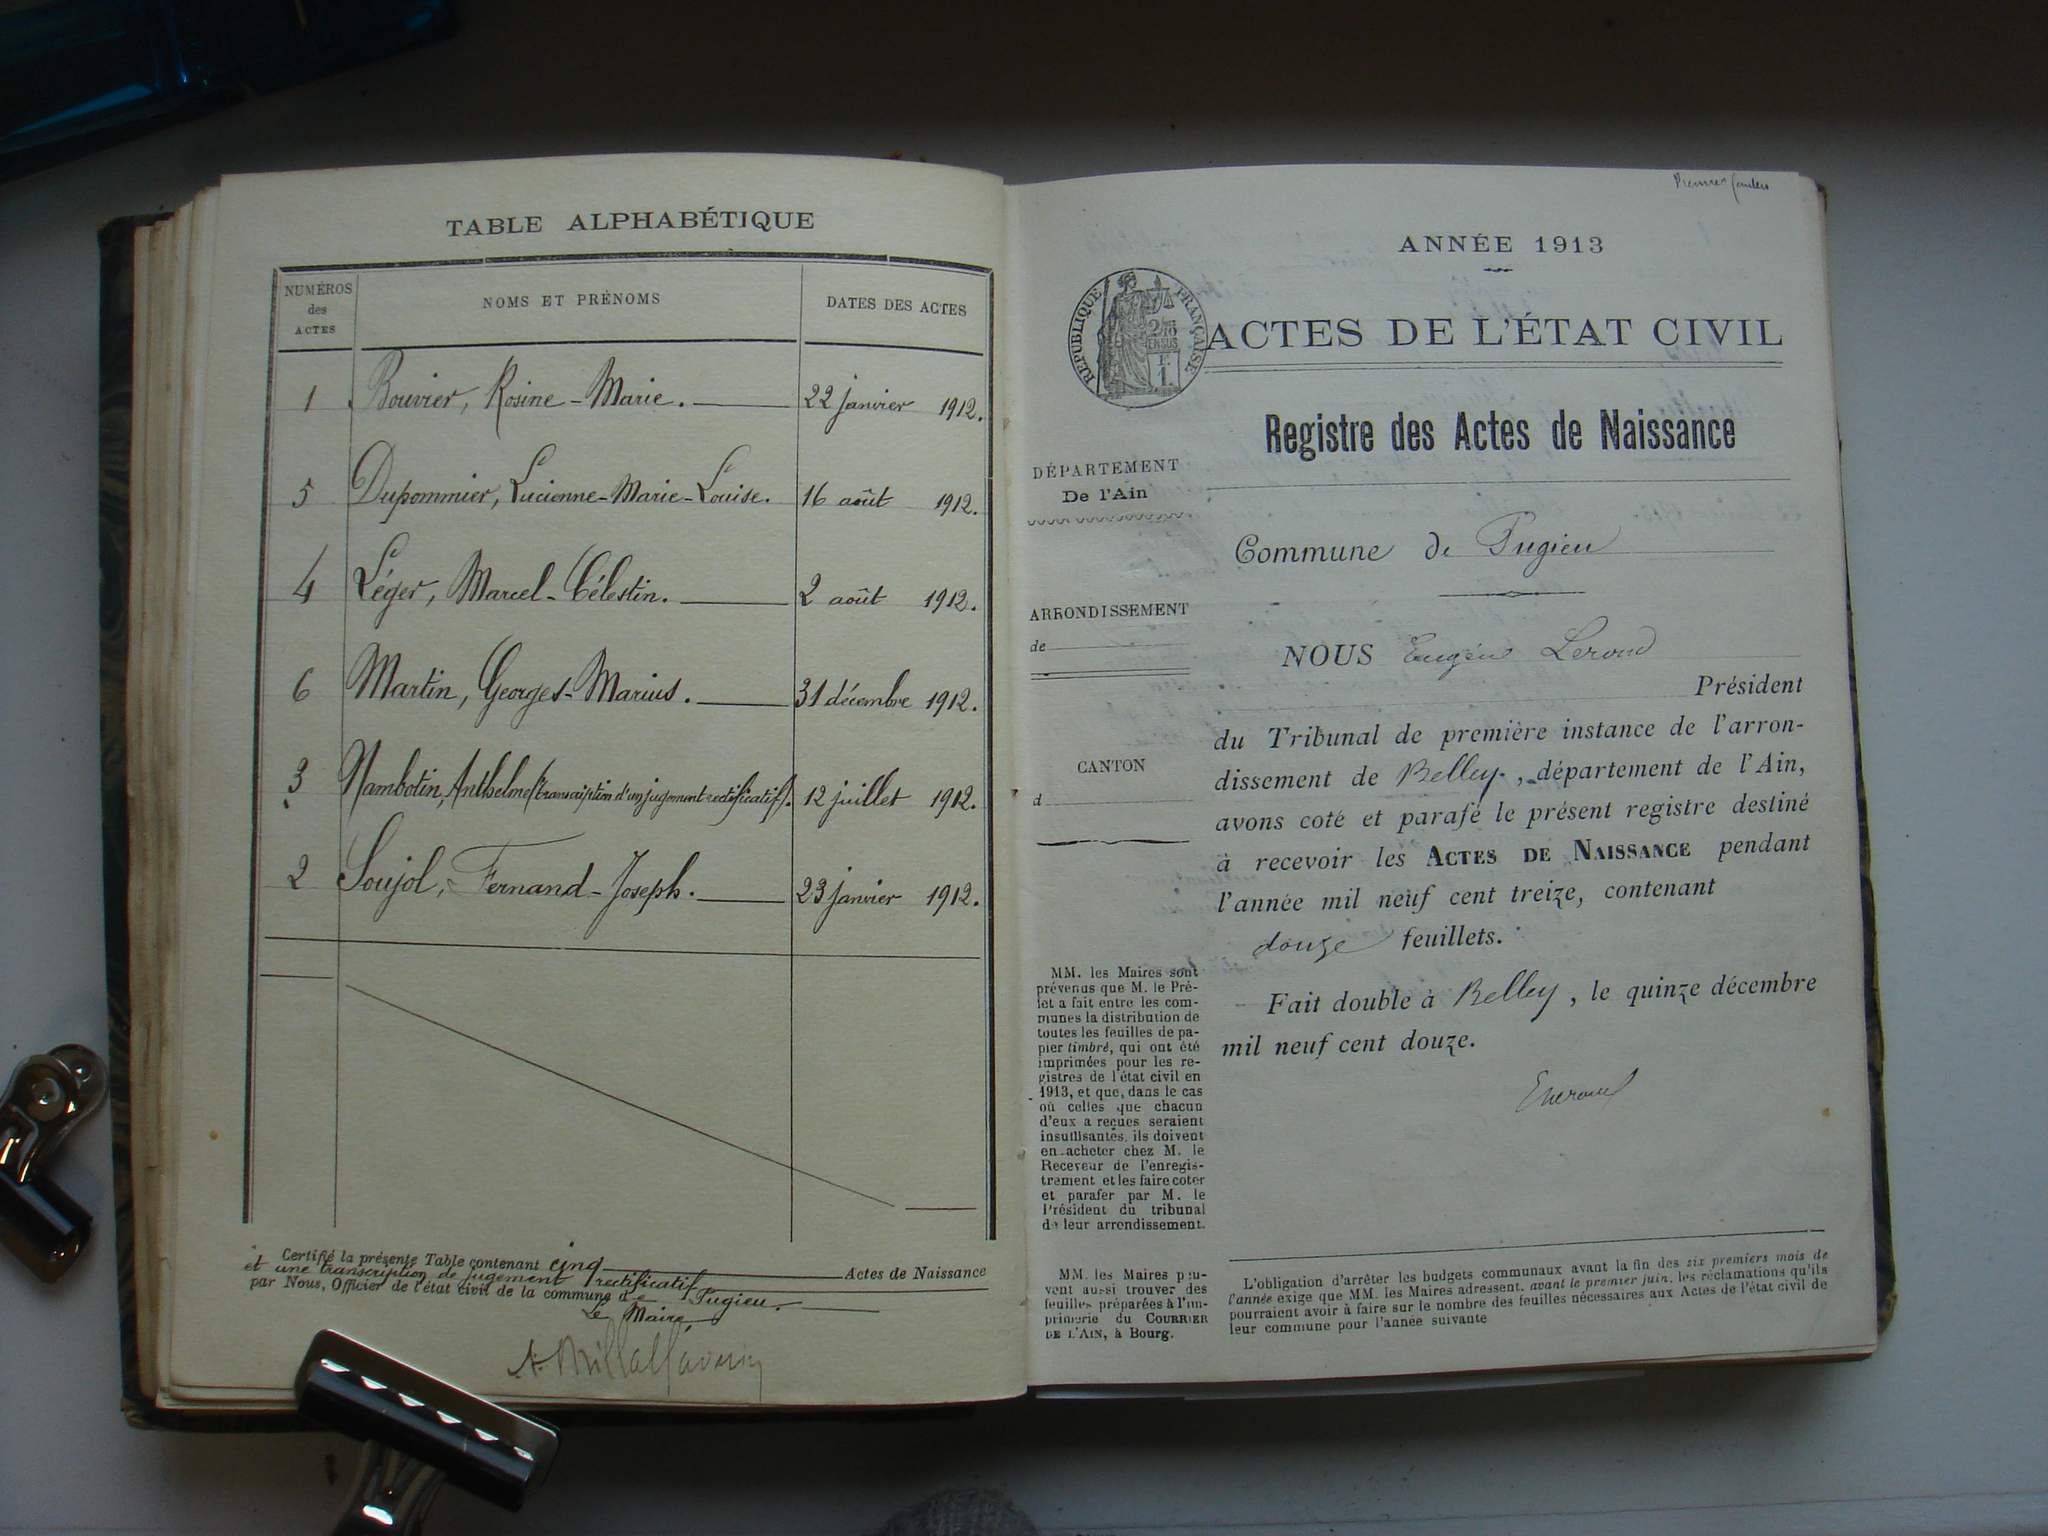 TABLE ALPHABÉTIQUE
NUMÉROS des ACTES
NOMS ET PRÉNOMS
DATES DES ACTES
1 Bouvier, Rosine-Marie. 22 janvier 1912.
5 Dupommier, Lucienne-Marie-Louise. 16 août 1912.
4 Léger, Marcel-Célestin. 2 août 1912.
6 Martin, Georges-Marius. 31 décembre 1912.
3 Nambotin, Anthelme (transcription d'un jugement rectificatif). 12 juillet 1912.
2 Soujol, Fernand-Joseph. 23 janvier 1912.
Certifié la présente Table contenant cinq Actes de Naissance
et une transcription de jugement rectificatif
par Nous, Officier de l'état civil de la commune de Pugieu.
Le Maire,
Premier
ANNÉE 1913
RÉPUBLIQUE FRANÇAISE
ACTES DE L'ÉTAT CIVIL
Registre des Actes de Naissance
DÉPARTEMENT
De l'Ain
Commune de Pugieu
ARRONDISSEMENT
de
CANTON
d
NOUS Eugène Lerond
Président
du Tribunal de première instance de l'arron-
dissement de Belley, département de l'Ain,
avons coté et parafé le présent registre destiné
à recevoir les ACTES DE NAISSANCE pendant
l'année mil neuf cent treize, contenant
douze feuillets.
Fait double à Belley, le quinze décembre
mil neuf cent douze.
MM. les Maires sont
prévenus que M. le Pré-
fet a fait entre les com-
munes la distribution de
toutes les feuilles de pa-
pier timbré, qui ont été
imprimées pour les re-
gistres de l'état civil en
1913, et que, dans le cas
où celles que chacun
d'eux a reçues seraient
insuffisantes, ils doivent
en acheter chez M. le
Receveur de l'enregis-
trement et les faire coter
et parafer par M. le
Président du tribunal
de leur arrondissement.
MM. les Maires peu-
vent aussi trouver des
feuilles préparées à l'im-
primerie du COURRIER
DE L'AIN, à Bourg.
L'obligation d'arrêter les budgets communaux avant la fin des six premiers mois de
l'année exige que MM. les Maires adressent, avant le premier juin, les réclamations qu'ils
pourraient avoir à faire sur le nombre des feuilles nécessaires aux Actes de l'état civil de
leur commune pour l'année suivante